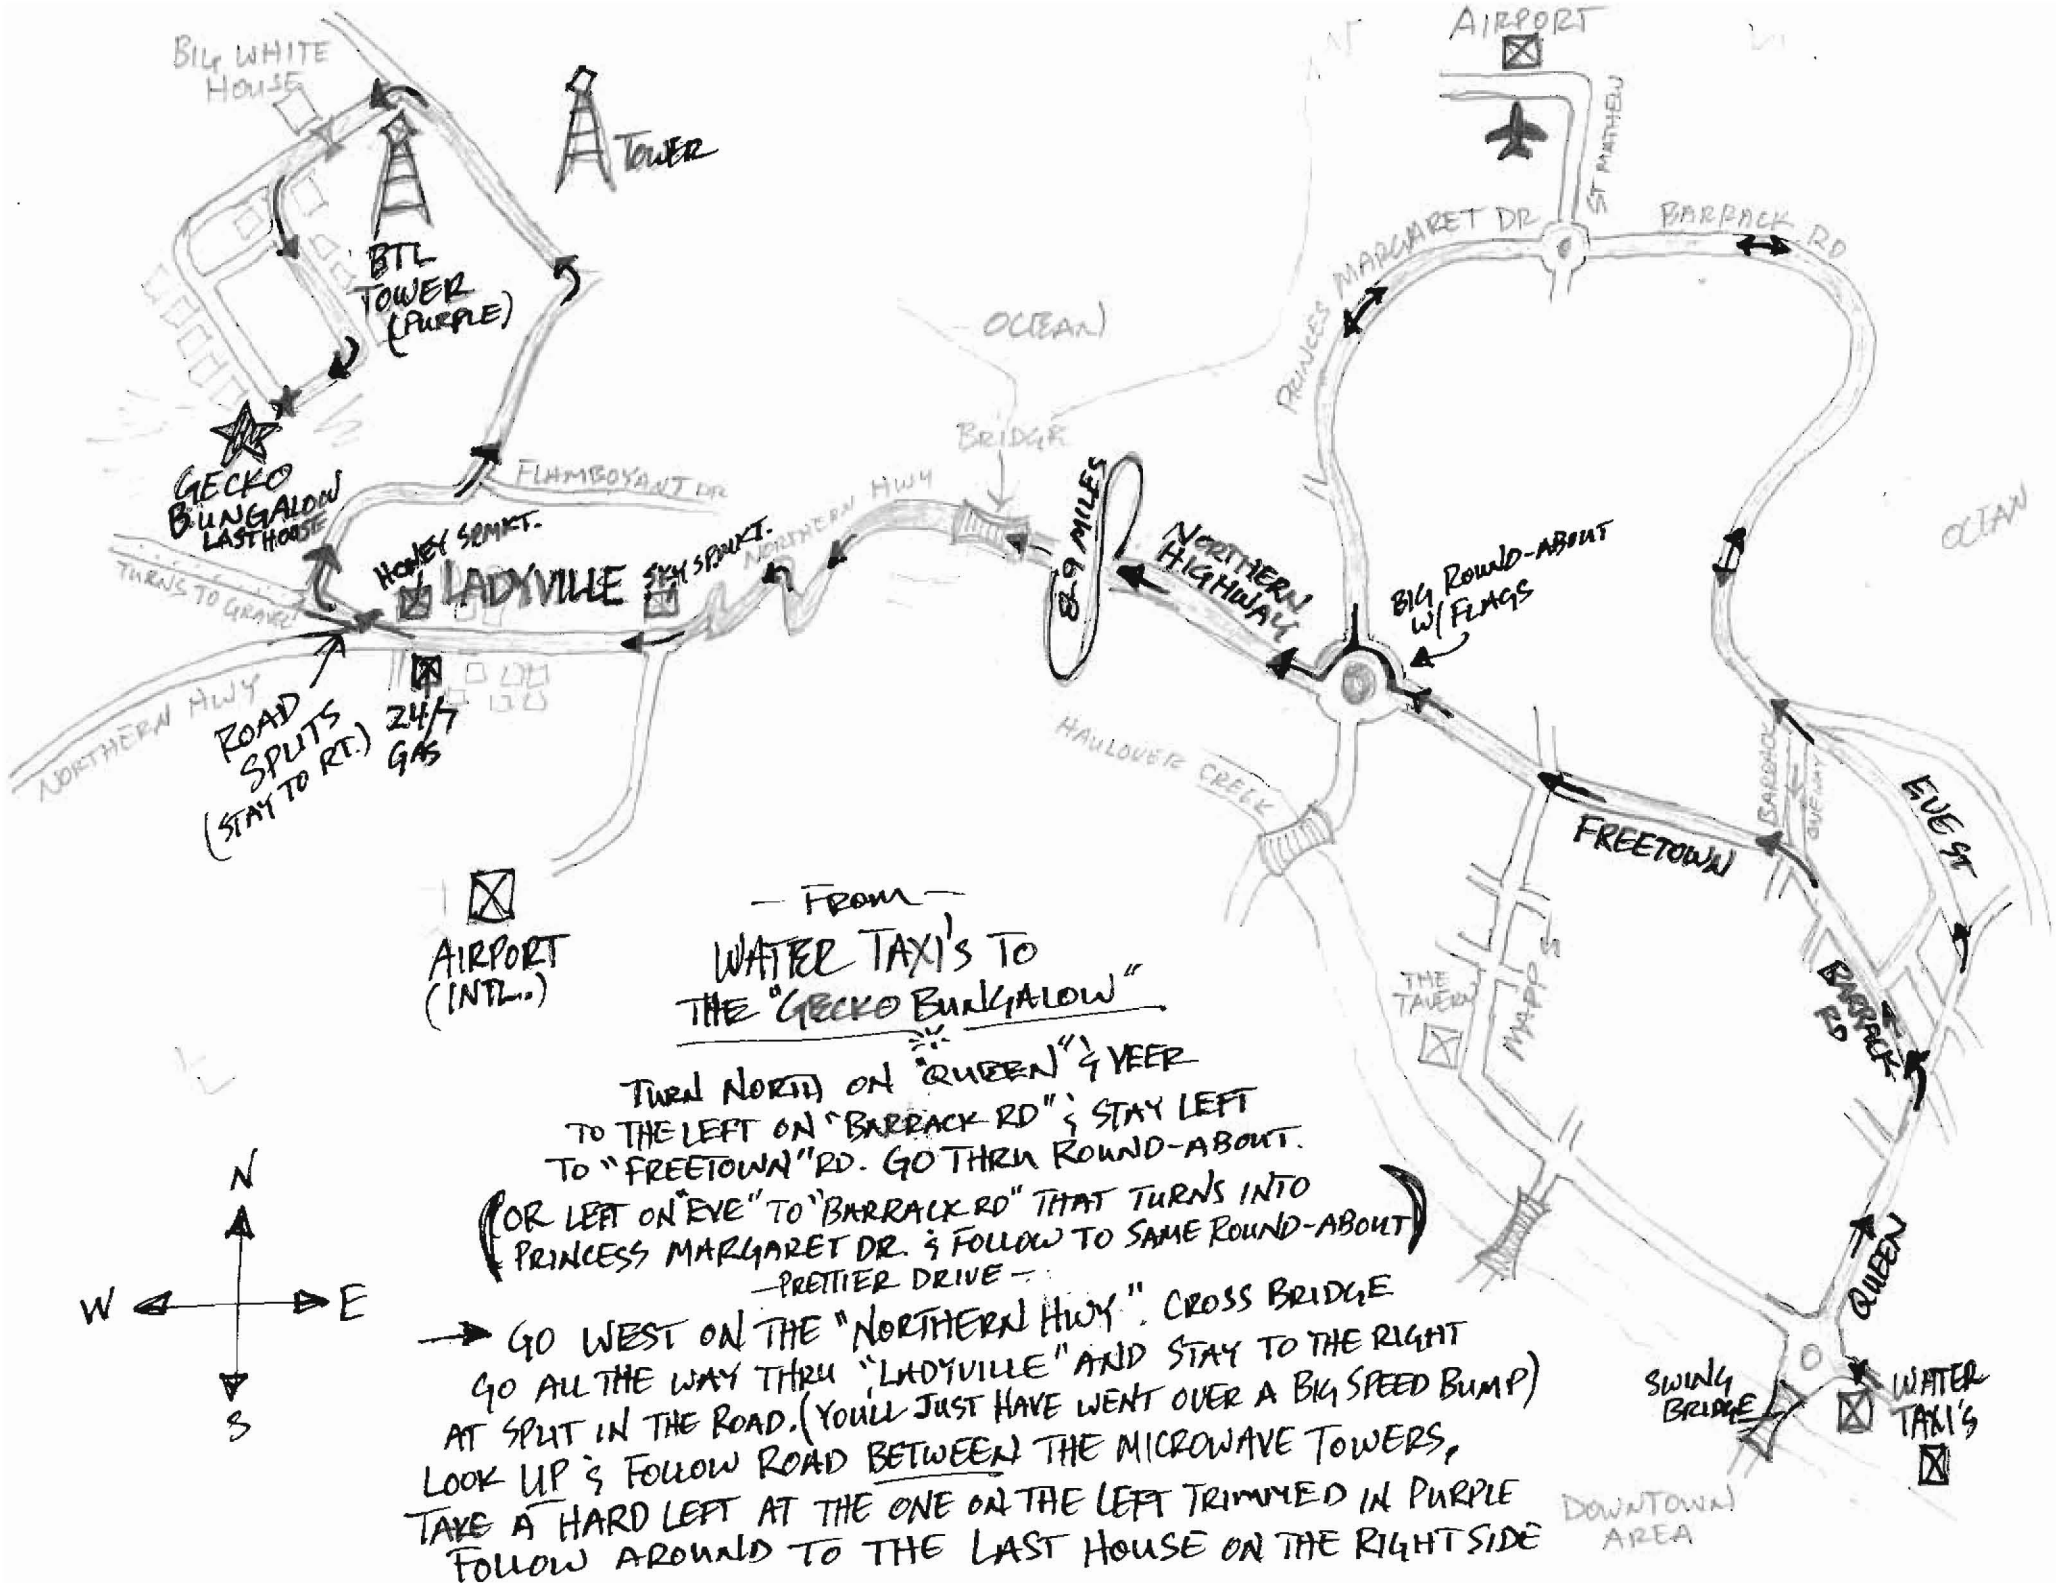 BIG WHITE
HOUSE
TOWER
BTL
TOWER
(PURPLE)
GECKO
BUNGALOW
LAST HOUSE
FLAMBOYANT DR
TURNS TO GRAVEL
HONEY SPMKT.
LADYVILLE
SKY SPMKT.
NORTHERN HWY
NORTHERN HWY
ROAD
SPLITS
(STAY TO RT.)
24/7
GAS
AIRPORT
(INTL.)
OCEAN
BRIDGE
8-9 MILES
NORTHERN
HIGHWAY
AIRPORT
ST MATHEW
PRINCES MARGARET DR
BARRACK RD
BIG ROUND-ABOUT
W/ FLAGS
OCEAN
HAULOVER CREEK
FREETOWN
BARRACK
EVE ST
BARRACK
RD
THE
TAVERN
MAPP S
QUEEN
SWING
BRIDGE
WATER
TAXI'S
DOWNTOWN
AREA
N
W E
S
- FROM -
WATER TAXI'S TO
THE "GECKO BUNGALOW"
TURN NORTH ON "QUEEN" & VEER
TO THE LEFT ON "BARRACK RD" & STAY LEFT
TO "FREETOWN" RD. GO THRU ROUND-ABOUT.
(OR LEFT ON "EVE" TO "BARRACK RD" THAT TURNS INTO
PRINCESS MARGARET DR. & FOLLOW TO SAME ROUND-ABOUT)
- PRETTIER DRIVE -
→ GO WEST ON THE "NORTHERN HWY". CROSS BRIDGE
GO ALL THE WAY THRU "LADYVILLE" AND STAY TO THE RIGHT
AT SPLIT IN THE ROAD. (YOU'LL JUST HAVE WENT OVER A BIG SPEED BUMP)
LOOK UP & FOLLOW ROAD BETWEEN THE MICROWAVE TOWERS,
TAKE A HARD LEFT AT THE ONE ON THE LEFT TRIMMED IN PURPLE
FOLLOW AROUND TO THE LAST HOUSE ON THE RIGHT SIDE